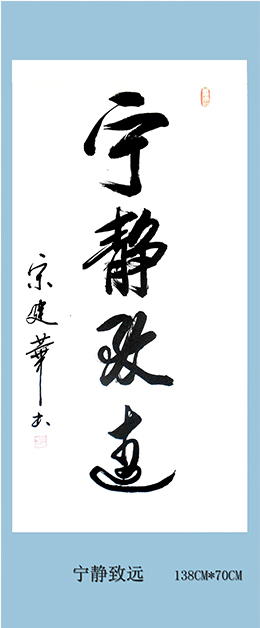 宁静致远
宋建华书
宁静致远 138CM*70CM